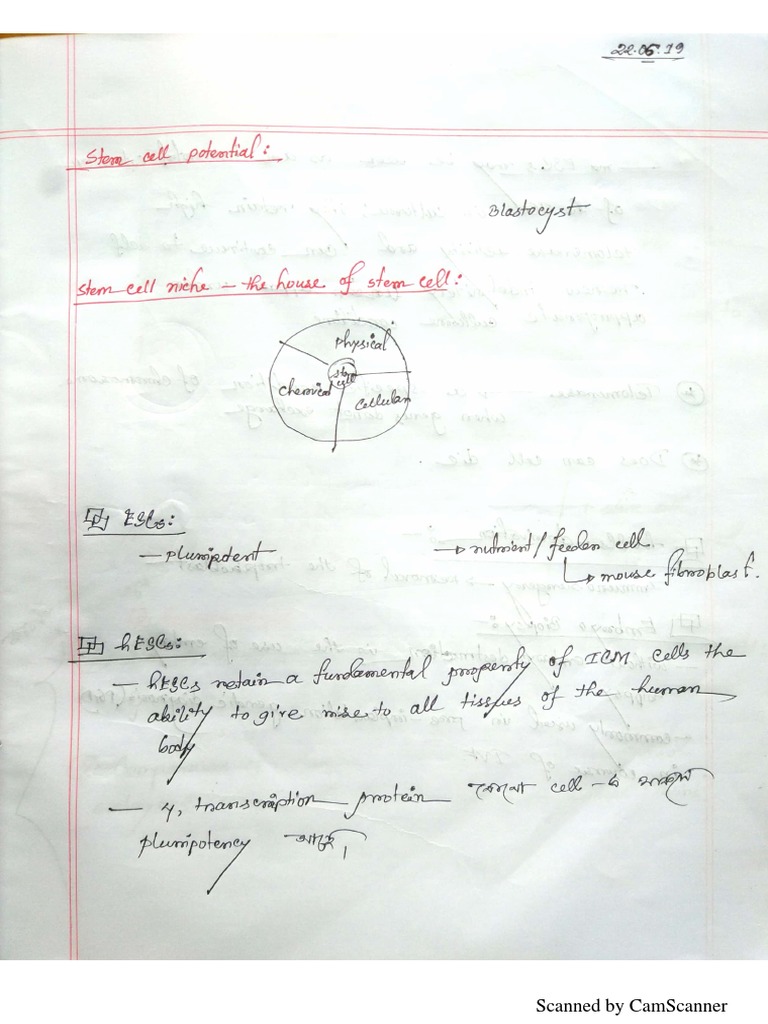 22.05.19
Stem cell potential:
Blastocyst
Stem cell niche – the house of stem cell:
Physical
stem
cell
Chemical
Cellular
ESCs:
– pluripotent
→ nutrient/feeder cell
↳ mouse fibroblast.
hESCs:
– hESCs retain a fundamental property of ICM cells the
ability to give rise to all tissues of the human
body
– 4, transcription protein কোনো cell-এ থাকলে
pluripotency আছে।
Scanned by CamScanner